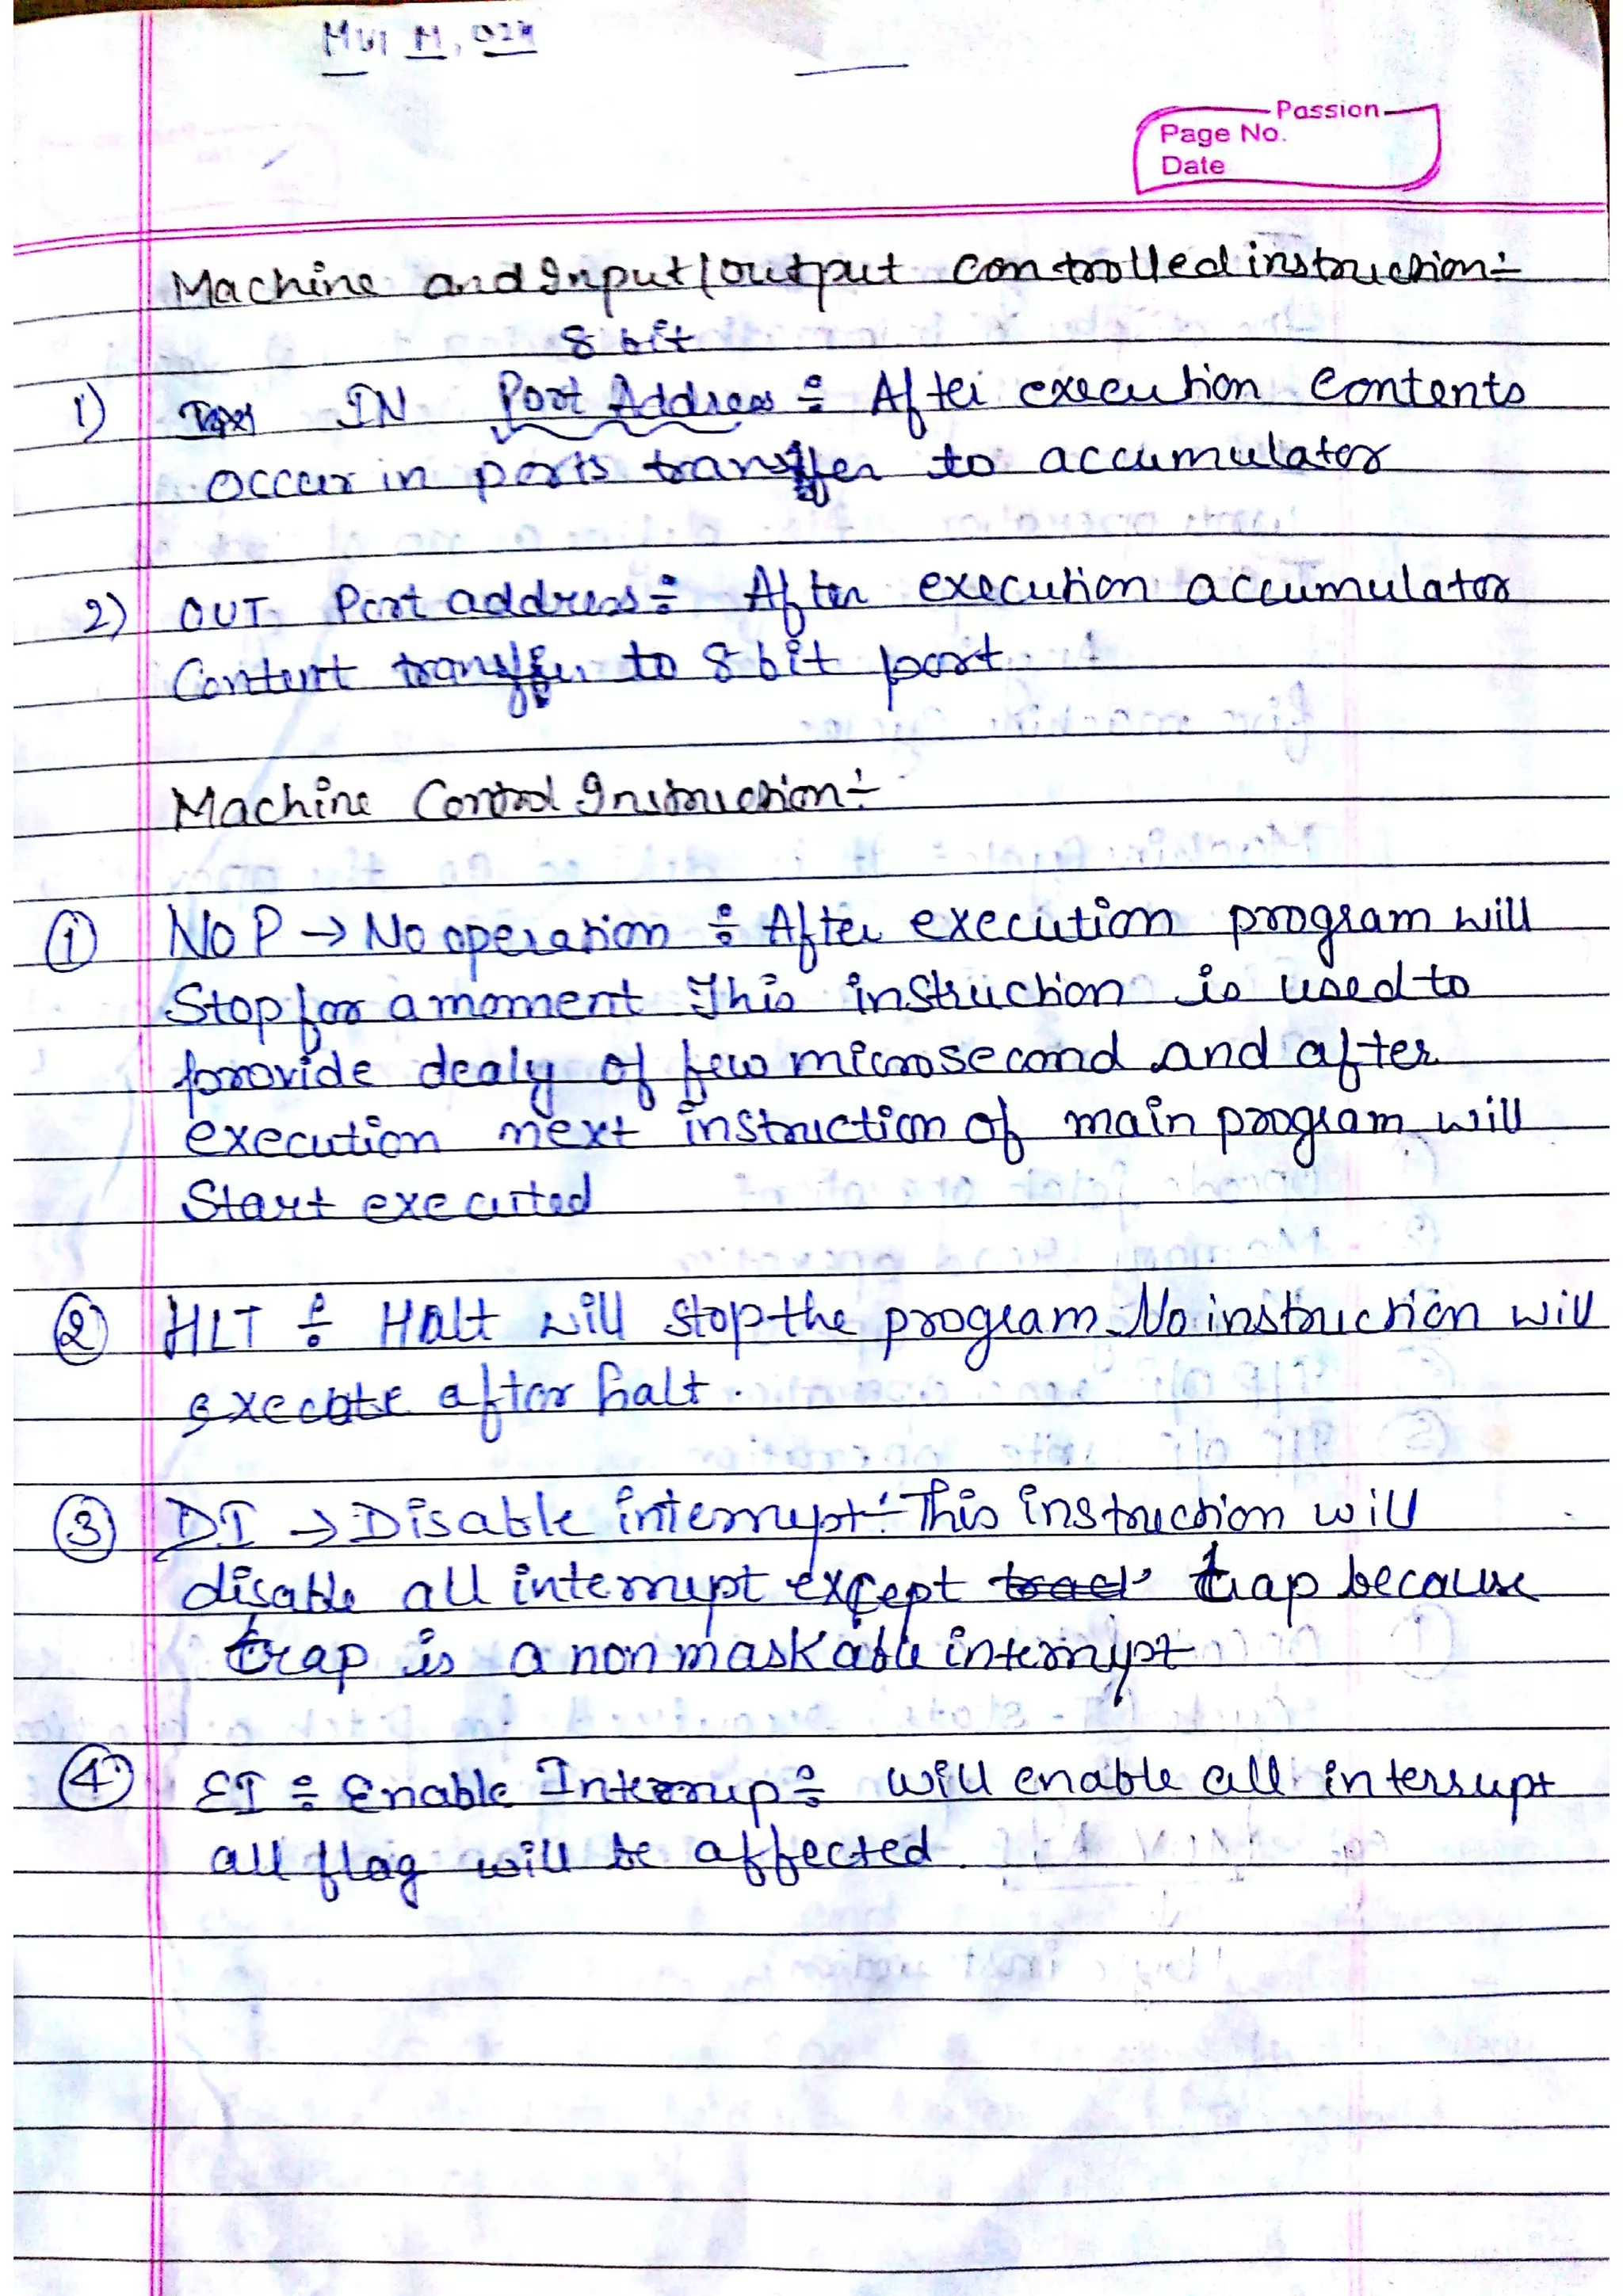 Passion
Page No.
Date
Machine and Input/output controlled instruction:-
8 bit
1) IN Port Address ÷ After execution contents
occur in ports transfer to accumulator
2) OUT Port address ÷ After execution accumulator
Content transfer to 8 bit port.
Machine Control Instruction:-
① NOP → No operation ÷ After execution program will
Stop for a moment This instruction is used to
provide dealy of few microsecond and after
execution next instruction of main program will
Start executed
② HLT ÷ Halt will stop the program. No instruction will
execute after halt.
③ DI → Disable interrupt:- This instruction will
disable all interrupt except trap because
trap is a non maskable interrupt
④ EI ÷ Enable Interrup ÷ will enable all interrupt
all flag will be affected.